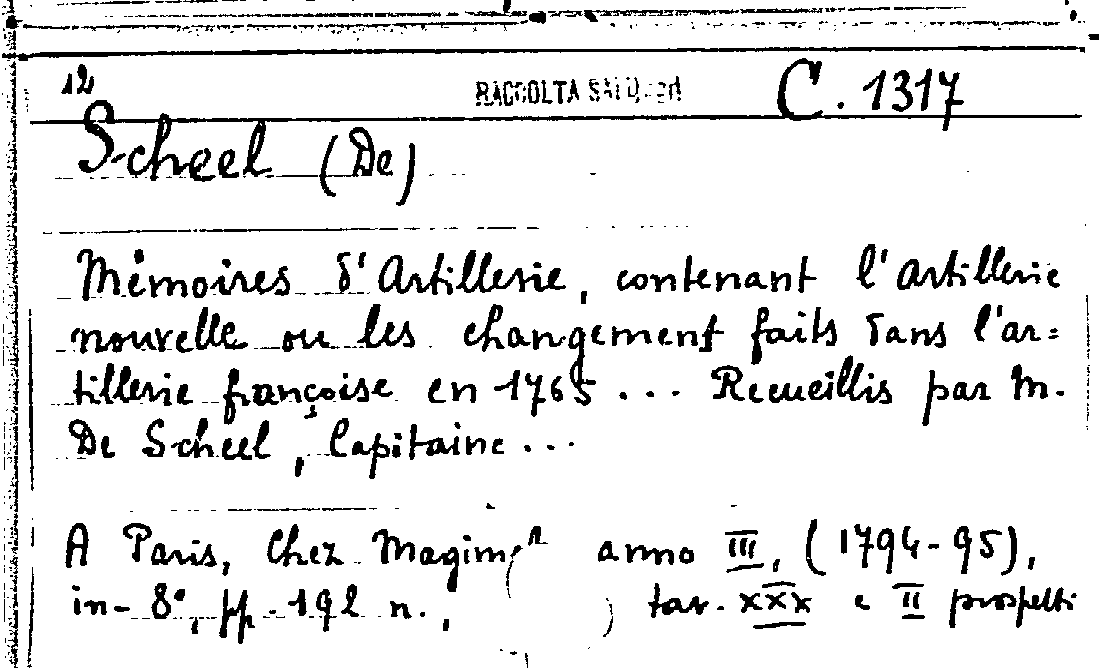 12 RACCOLTA C. 1317
Scheel (De)
Mémoires d'Artillerie, contenant l'artillerie
nouvelle ou les changement faits dans l'ar=
tillerie françoise en 1765 ... Recueillis par M.
De Scheel, Capitaine ...
A Paris, Chez anno III, (1794-95),
in-8°, pp. 192 n., tav. XXX e II prospetti